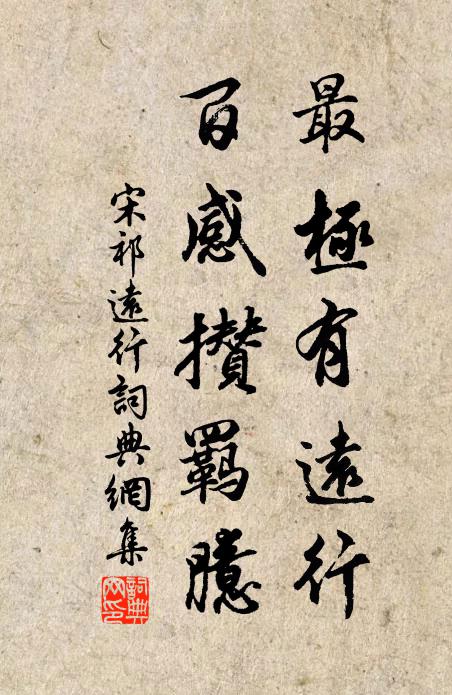 最極有遠行
百感攢羈臆
宋祁遠行詞典網集
詞典
网印